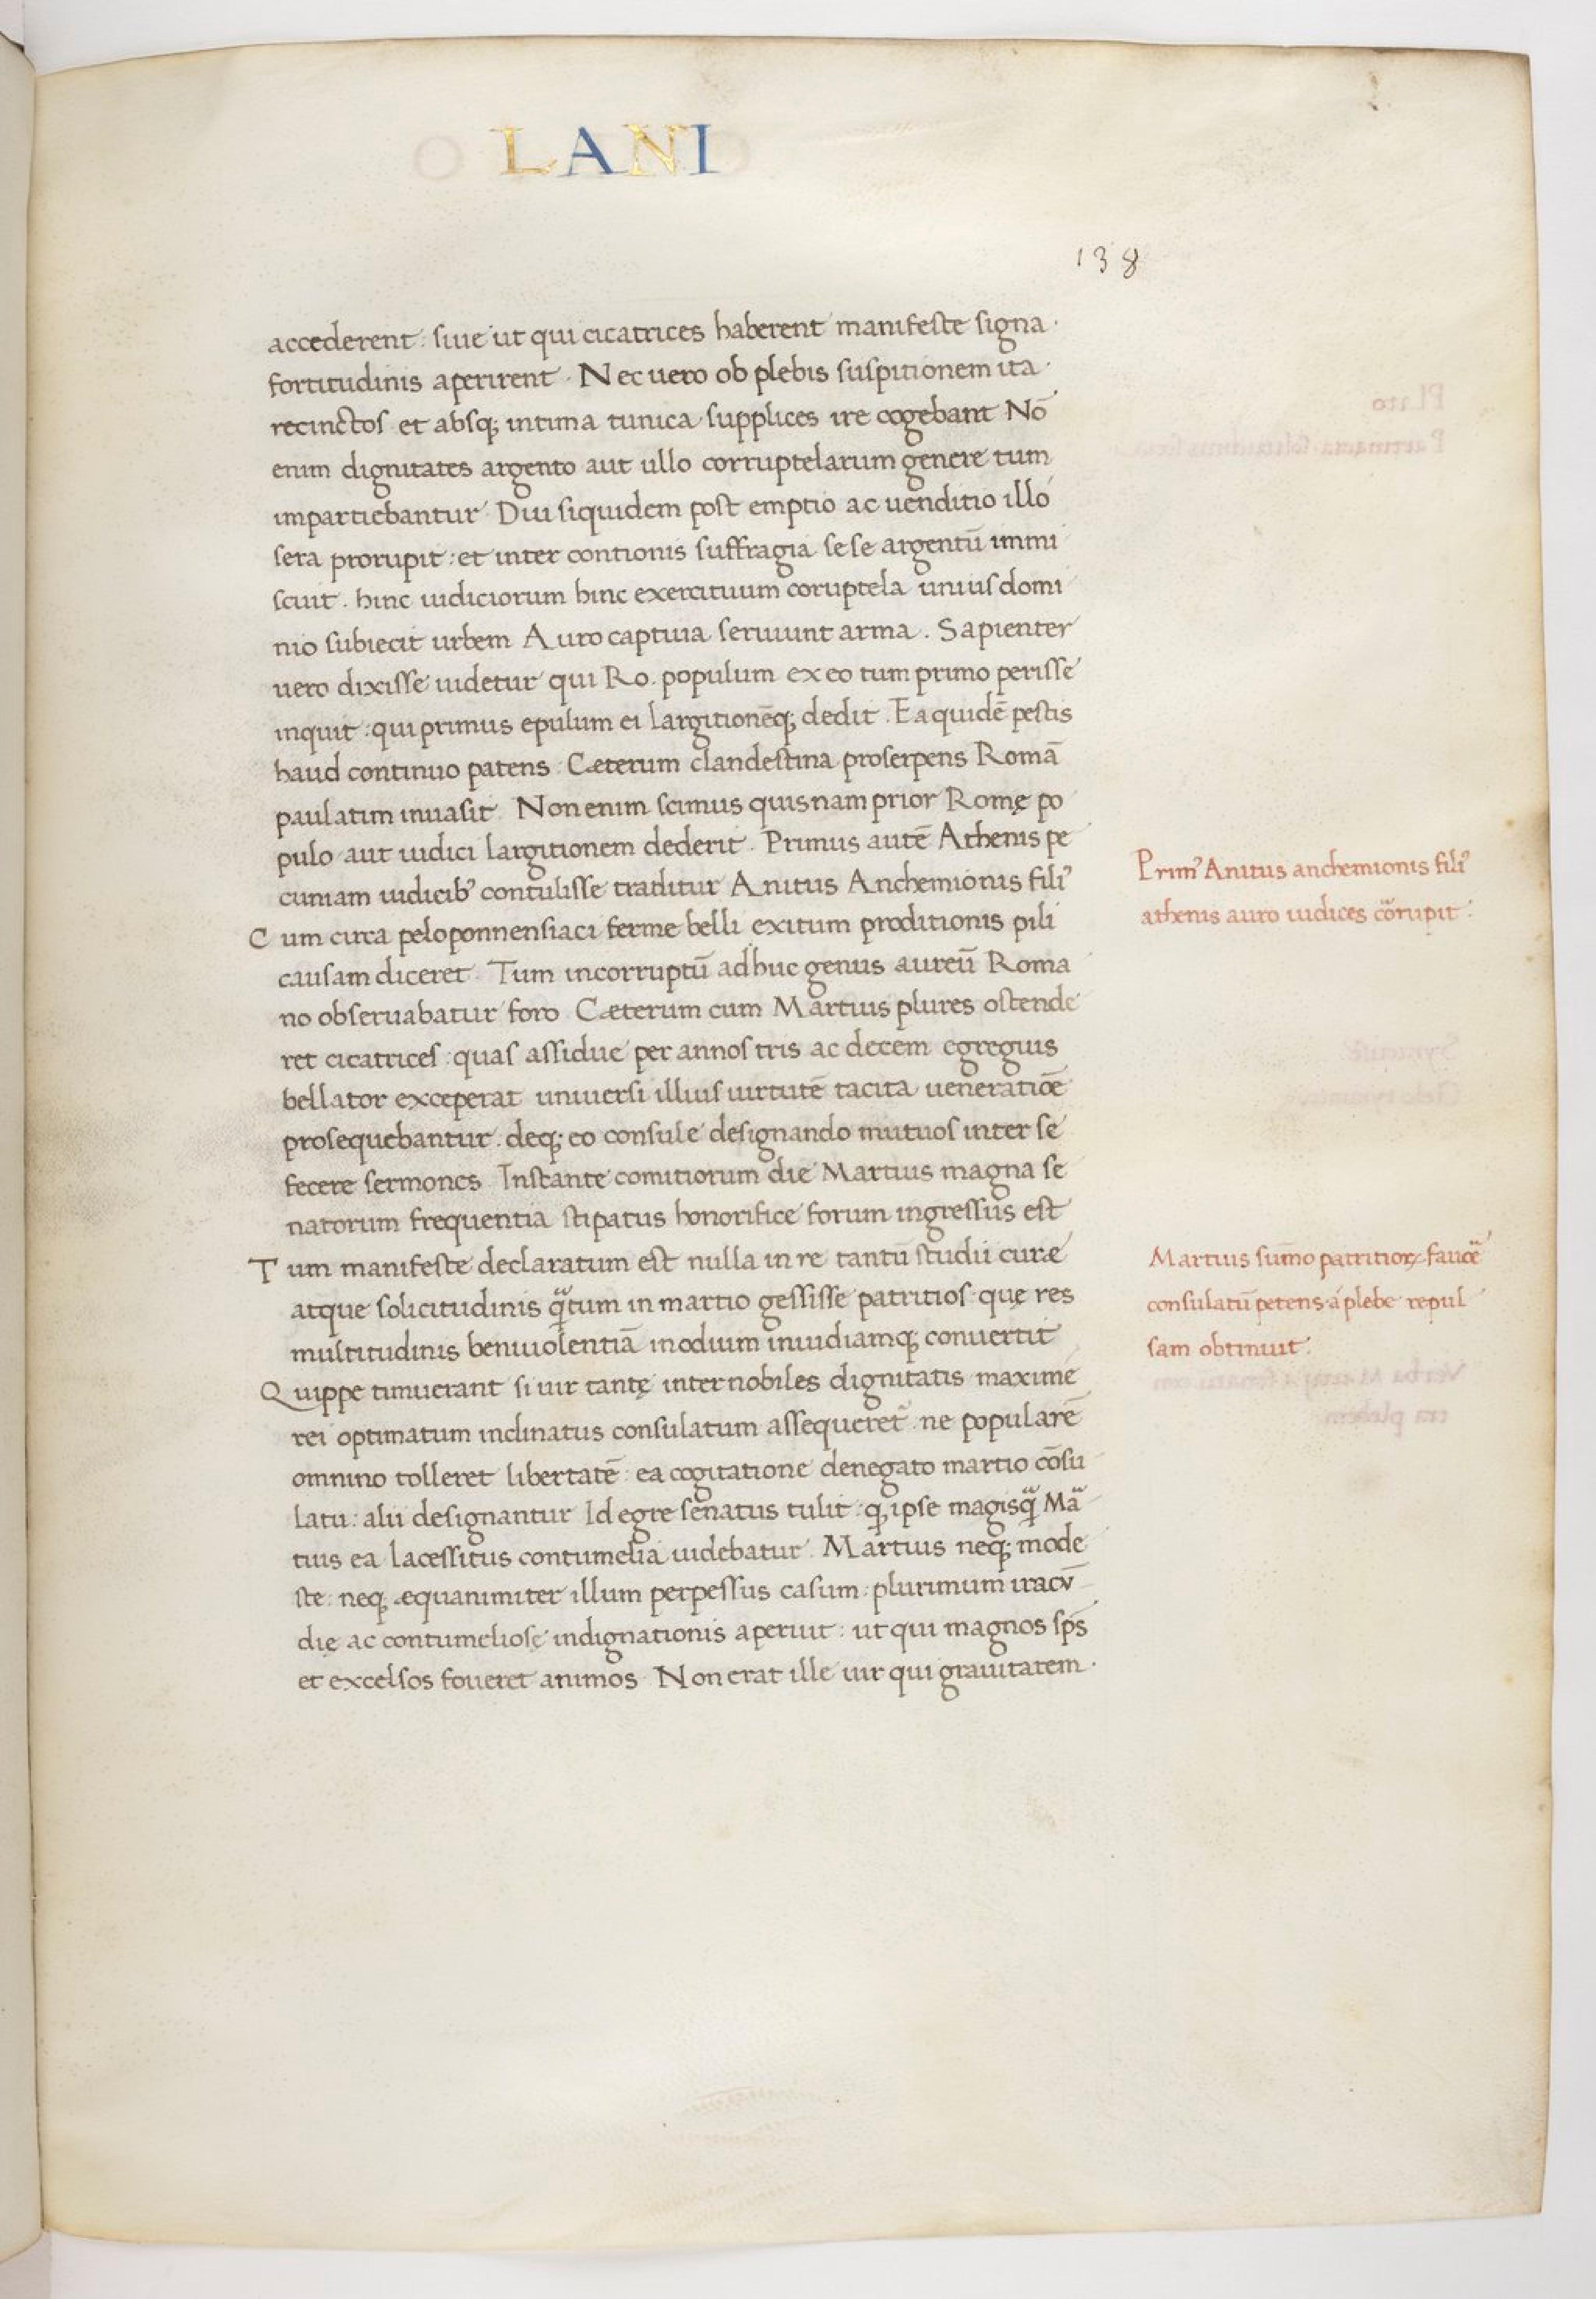 LANI
138
accederent: siue ut qui cicatrices haberent manifeste signa·
fortitudinis aperirent· Nec uero ob plebis suspitionem ita·
recinctos et absq; intima tunica supplices ire cogebant Nō
enim dignitates argento aut ullo corruptelarum genere tum
impartiebantur· Diu siquidem post emptio ac uenditio illo
sera prorupit: et inter contionis suffragia sese argentū immi
scuit. hinc iudiciorum hinc exercituum coruptela unius domi
nio subiecit urbem Auro captiua seruiunt arma. Sapienter
uero dixisse uidetur qui Ro. populum ex eo tum primo perisse
inquit: qui primus epulum ei largitionēq; dedit. Ea quidē pestis
haud continuo patens: Cæterum clandestina proserpens Romā
paulatim inuasit. Non enim scimus quisnam prior Romę po
pulo aut iudici largitionem dederit. Primus autē Athenis pe
cuniam iudicib' contulisse traditur Anitus Anchemionis fili'
Cum circa peloponnensiaci ferme belli exitum proditionis pili
causam diceret. Tum incorruptū adhuc genus aureū Roma
no obseruabatur foro Cæterum cum Martius plures ostende
ret cicatrices: quas assidue per annos tris ac decem egregius
bellator exceperat uniuersi illius uirtutē tacita ueneratiōe
prosequebantur. deq; eo consule designando mutuos inter se
fecere sermones Instante comitiorum die Martius magna se
natorum frequentia stipatus honorifice forum ingressus est
Tum manifeste declaratum est nulla in re tantū studii curæ
atque solicitudinis qᵃ̈tum in martio gessisse patritios: quę res
multitudinis beniuolentiā in odium inuidiamq; conuertit
Quippe timuerant si uir tantę inter nobiles dignitatis maxime
rei optimatum inclinatus consulatum assequeret᷑ ne popularē
omnino tolleret libertatē: ea cogitatione denegato martio cōsu
latu: alii designantur Id egre senatus tulit: q; ipse magisqᵃ̈ Mᵃ̈
tius ea lacessitus contumelia uidebatur. Martius neq; mode
ste: neq; æquanimiter illum perpessus casum: plurimum iracū
dię ac contumeliosę indignationis aperuit: ut qui magnos sp̄s
et excelsos foueret animos Non erat ille uir qui grauitatem·
Prim' Anitus anchemionis fili'
athenis auro iudices cōrupit:
Martius sūmo patritioꝝ fauōe
consulatū petens a plebe repul
sam obtinuit: